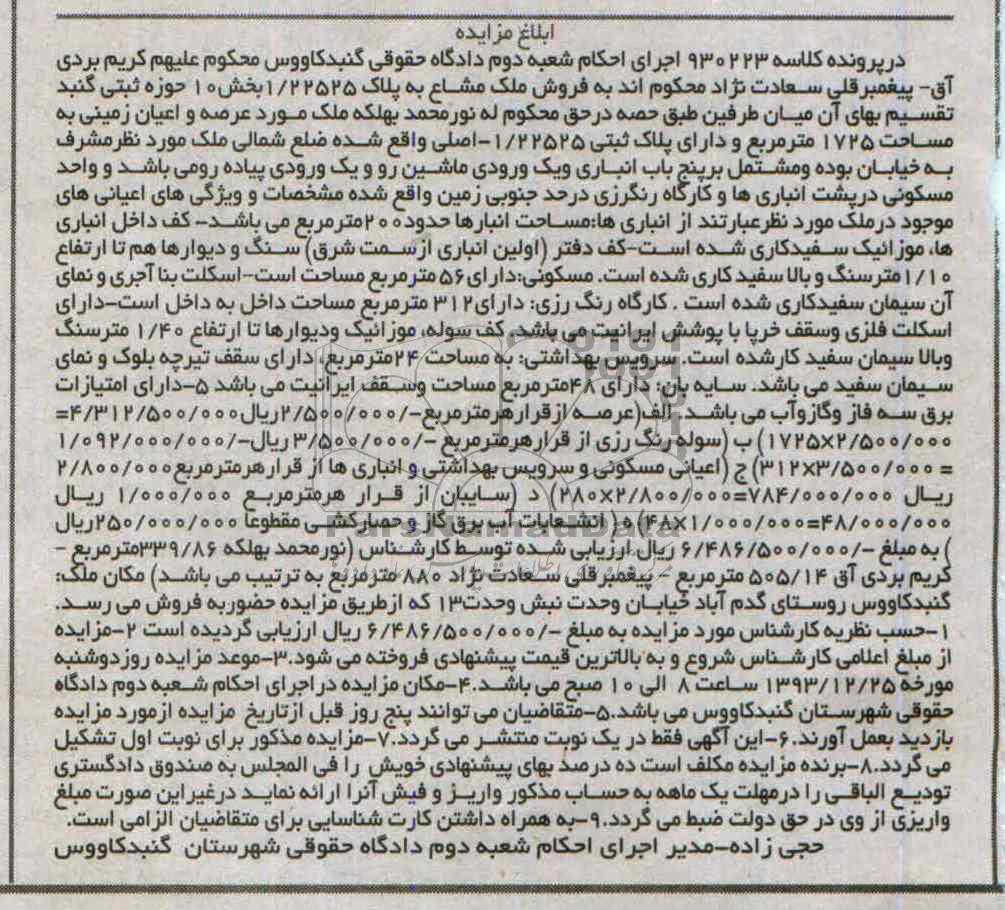 ابلاغ مزایده
درپرونده کلاسه ۹۳۰۲۲۳ اجرای احکام شعبه دوم دادگاه حقوقی گنبدکاووس محکوم علیهم کریم بردی
آق- پیغمبرقلی سعادت نژاد محکوم اند به فروش ملک مشاع به پلاک ۱/۲۲۵۲۵بخش۱۰ حوزه ثبتی گنبد
تقسیم بهای آن میان طرفین طبق حصه درحق محکوم له نورمحمد بهلکه ملک مورد عرصه و اعیان زمینی به
مساحت ۱۷۲۵ مترمربع و دارای پلاک ثبتی ۱/۲۲۵۲۵-اصلی واقع شده ضلع شمالی ملک مورد نظرمشرف
به خیابان بوده ومشتمل برپنج باب انباری ویک ورودی ماشین رو و یک ورودی پیاده رومی باشد و واحد
مسکونی درپشت انباری ها و کارگاه رنگرزی درحد جنوبی زمین واقع شده مشخصات و ویژگی های اعیانی های
موجود درملک مورد نظرعبارتند از انباری ها:مساحت انبارها حدود۲۰۰مترمربع می باشد- کف داخل انباری
ها، موزائیک سفیدکاری شده است-کف دفتر (اولین انباری ازسمت شرق) سنگ و دیوارها هم تا ارتفاع
۱/۱۰مترسنگ و بالا سفید کاری شده است. مسکونی:دارای۵۶ مترمربع مساحت است-اسکلت بنا آجری و نمای
آن سیمان سفیدکاری شده است . کارگاه رنگ رزی: دارای۳۱۲ مترمربع مساحت داخل به داخل است-دارای
اسکلت فلزی وسقف خرپا با پوشش ایرانیت می باشد. کف سوله، موزائیک ودیوارها تا ارتفاع ۱/۴۰ مترسنگ
وبالا سیمان سفید کارشده است. سرویس بهداشتی: به مساحت ۲۴مترمربع، دارای سقف تیرچه بلوک و نمای
سیمان سفید می باشد. سایه بان: دارای ۴۸مترمربع مساحت وسقف ایرانیت می باشد ۵-دارای امتیازات
برق سه فاز وگازوآب می باشد. الف(عرصه ازقرارهرمترمربع-/۲/۵۰۰/۰۰۰ریال۴/۳۱۲/۵۰۰/۰۰۰=
۱۷۲۵×۲/۵۰۰/۰۰۰) ب (سوله رنگ رزی از قرارهرمترمربع -/۳/۵۰۰/۰۰۰ ریال-/۱/۰۹۲/۰۰۰/۰۰۰
= ۳۱۲×۳/۵۰۰/۰۰۰) ج (اعیانی مسکونی و سرویس بهداشتی و انباری ها از قرارهرمترمربع۲/۸۰۰/۰۰۰
ریال ۷۸۴/۰۰۰/۰۰۰=۲۸۰×۲/۸۰۰/۰۰۰) د (سایبان از قرار هرمترمربع ۱/۰۰۰/۰۰۰ ریال
۴۸/۰۰۰/۰۰۰=۴۸×۱/۰۰۰/۰۰۰) ه ( انشعابات آب برق گاز و حصارکشی مقطوعا ۲۵۰/۰۰۰/۰۰۰ریال
) به مبلغ -/۶/۴۸۶/۵۰۰/۰۰۰ ریال ارزیابی شده توسط کارشناس (نورمحمد بهلکه ۳۳۹/۸۶مترمربع -
کریم بردی آق ۵۰۵/۱۴ مترمربع - پیغمبرقلی سعادت نژاد ۸۸۰ مترمربع به ترتیب می باشد) مکان ملک:
گنبدکاووس روستای گدم آباد خیابان وحدت نبش وحدت۱۳ که ازطریق مزایده حضوربه فروش می رسد.
۱-حسب نظریه کارشناس مورد مزایده به مبلغ -/۶/۴۸۶/۵۰۰/۰۰۰ ریال ارزیابی گردیده است ۲-مزایده
از مبلغ اعلامی کارشناس شروع و به بالاترین قیمت پیشنهادی فروخته می شود.۳-موعد مزایده روزدوشنبه
مورخه ۱۳۹۳/۱۲/۲۵ ساعت ۸ الی ۱۰ صبح می باشد.۴-مکان مزایده دراجرای احکام شعبه دوم دادگاه
حقوقی شهرستان گنبدکاووس می باشد.۵-متقاضیان می توانند پنج روز قبل ازتاریخ مزایده ازمورد مزایده
بازدید بعمل آورند.۶-این آگهی فقط در یک نوبت منتشر می گردد.۷-مزایده مذکور برای نوبت اول تشکیل
می گردد.۸-برنده مزایده مکلف است ده درصد بهای پیشنهادی خویش را فی المجلس به صندوق دادگستری
تودیع الباقی را درمهلت یک ماهه به حساب مذکور واریز و فیش آنرا ارائه نماید درغیراین صورت مبلغ
واریزی از وی در حق دولت ضبط می گردد.۹-به همراه داشتن کارت شناسایی برای متقاضیان الزامی است.
حجی زاده-مدیر اجرای احکام شعبه دوم دادگاه حقوقی شهرستان گنبدکاووس
ParsNamadData